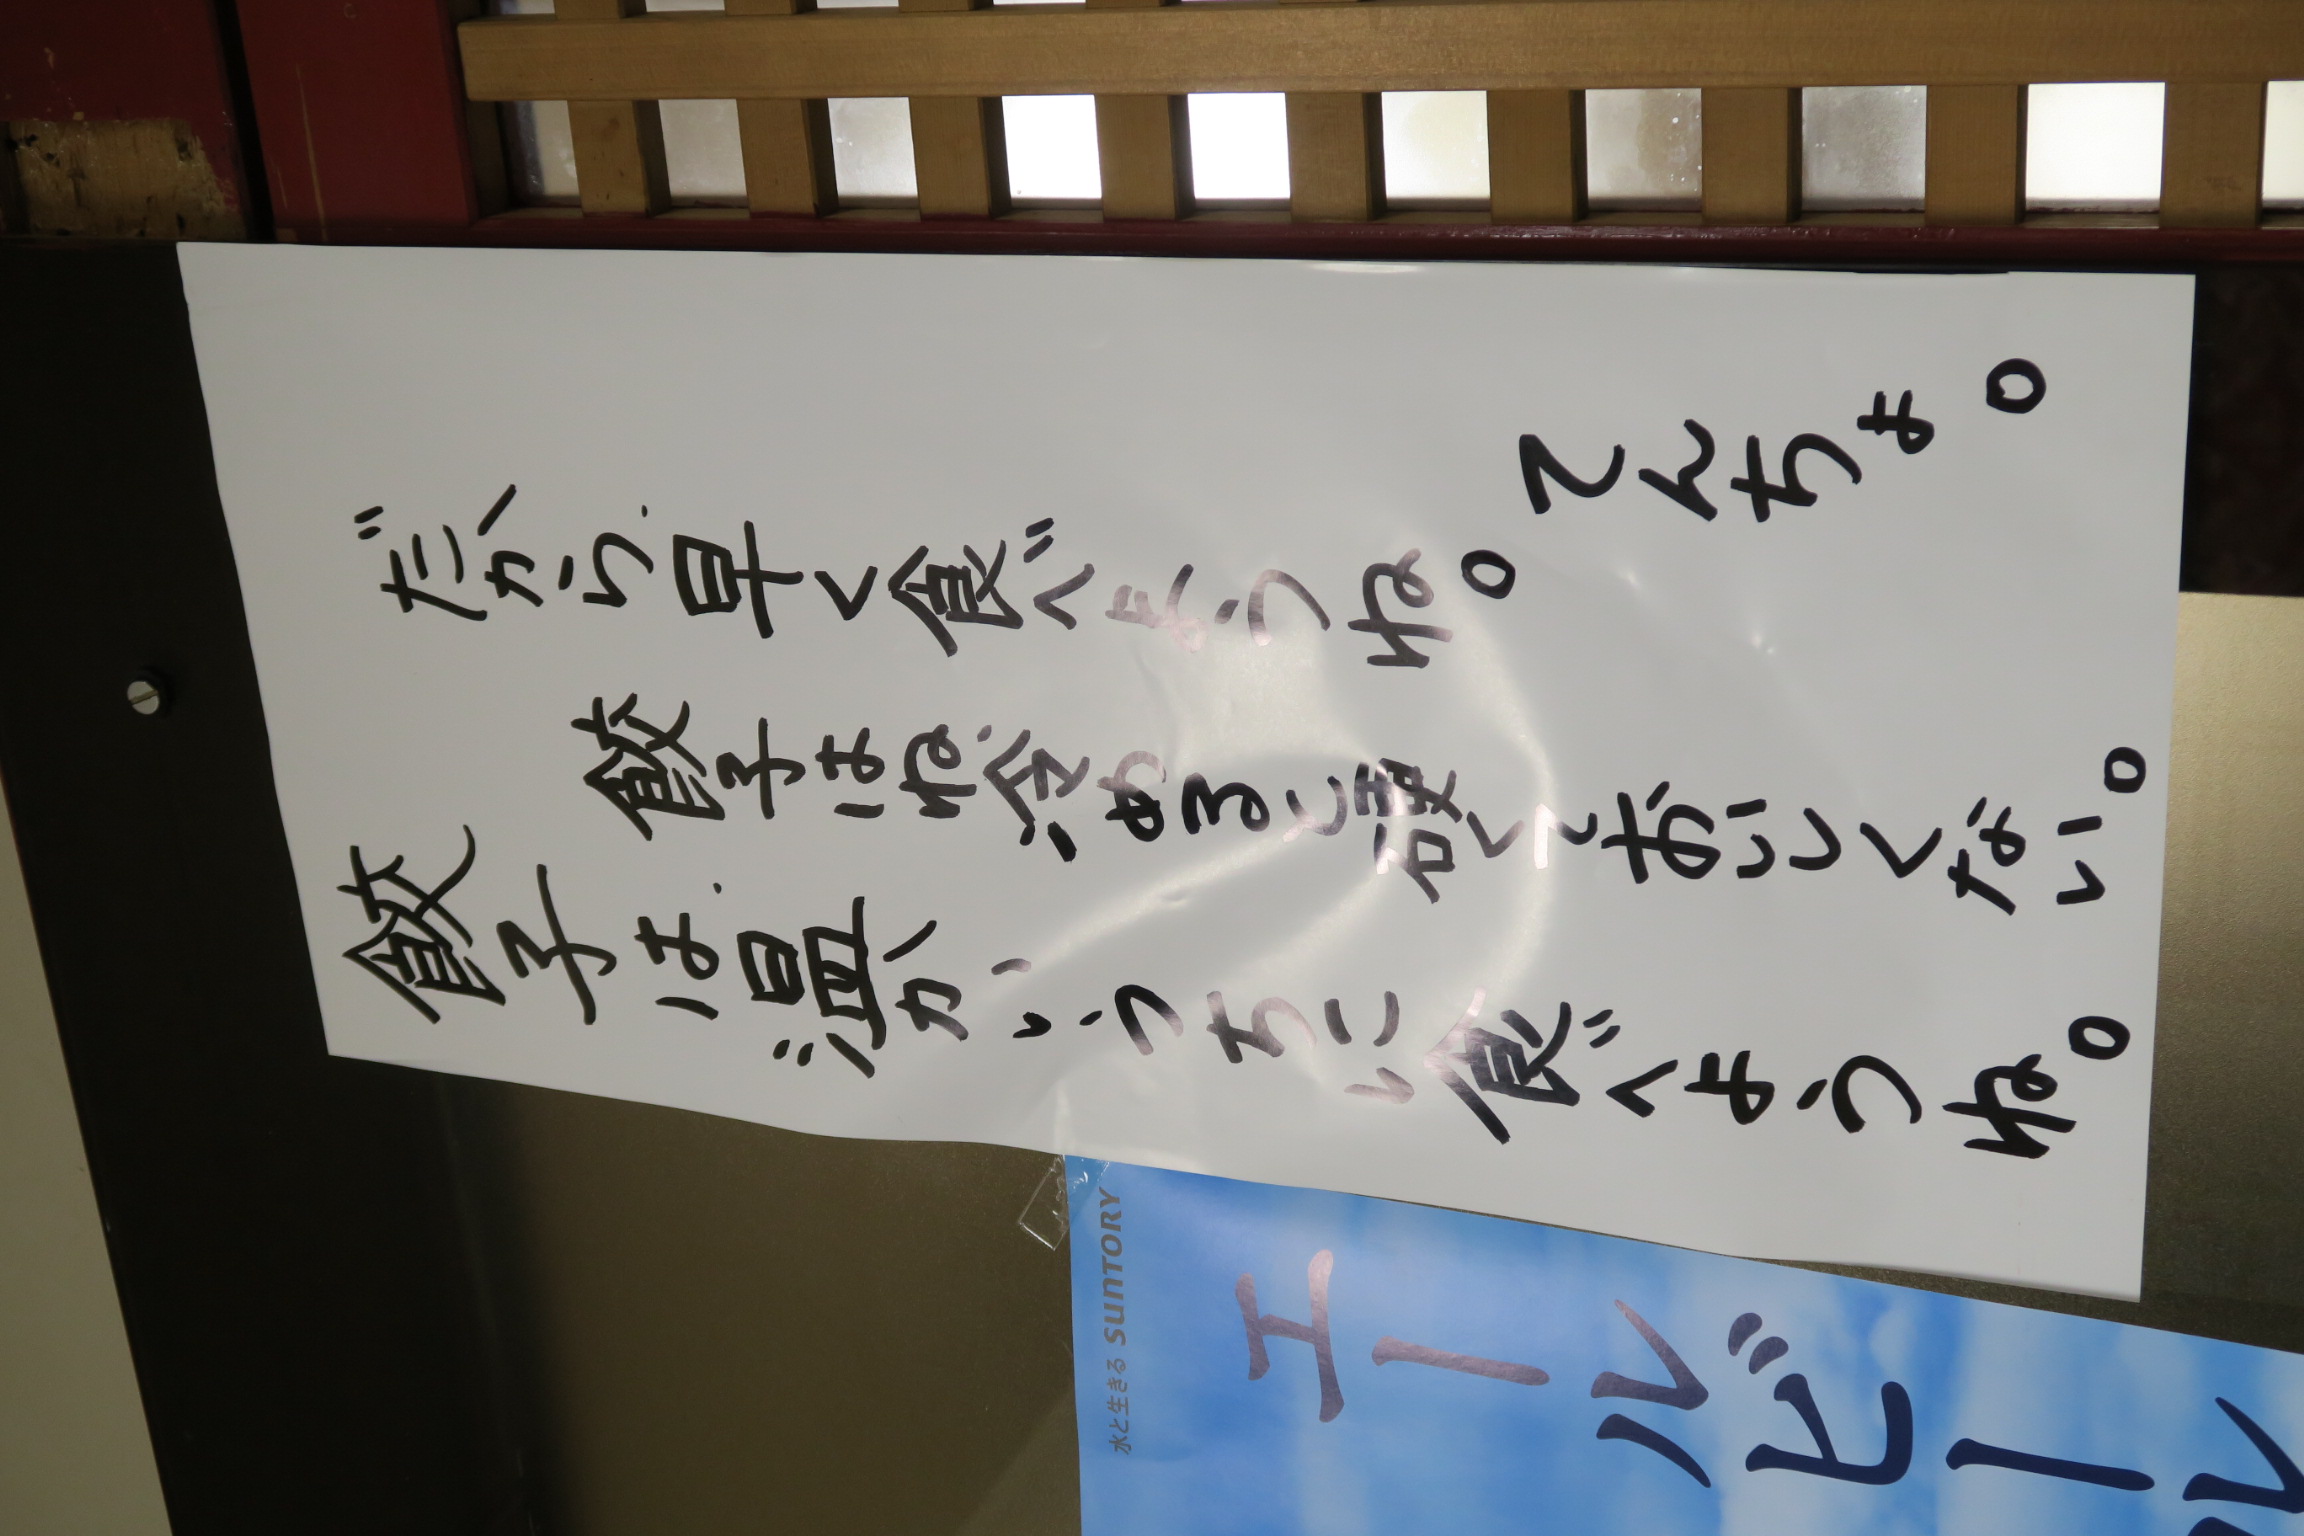 餃子は、温かいうちに食べようね。
餃子はね、冷めると硬くておいしくない。
だから、早く食べようね。
てんちょ。
水と生きる SUNTORY
エールビール